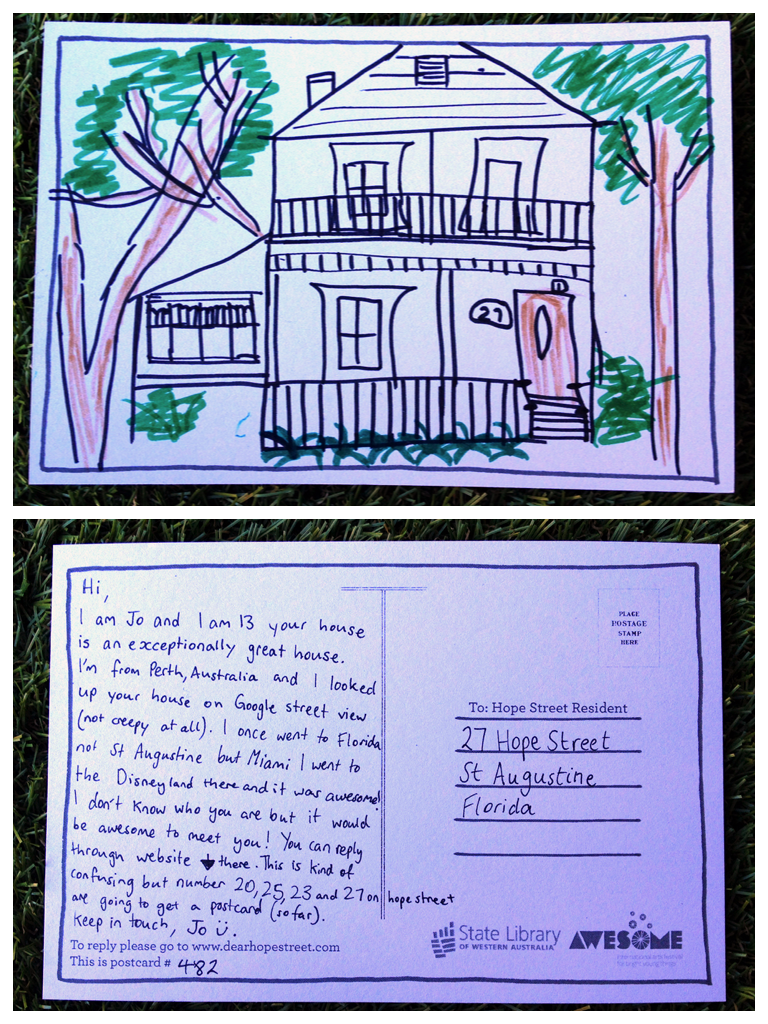 27
Hi,
I am Jo and I am 13 your house
is an exceptionally great house.
I'm from Perth, Australia and I looked
up your house on Google street view
(not creepy at all). I once went to Florida
not St Augustine but Miami I went to
the Disneyland there and it was awesome!
I don't know who you are but it would
be awesome to meet you! You can reply
through website there. This is kind of
confusing but number 20, 25, 23 and 27 on hope street
are going to get a postcard (so far).
Keep in touch, Jo
To reply please go to www.dearhopestreet.com
This is postcard # 482
PLACE
POSTAGE
STAMP
HERE
To: Hope Street Resident
27 Hope Street
St Augustine
Florida
State Library
OF WESTERN AUSTRALIA
AWESOME